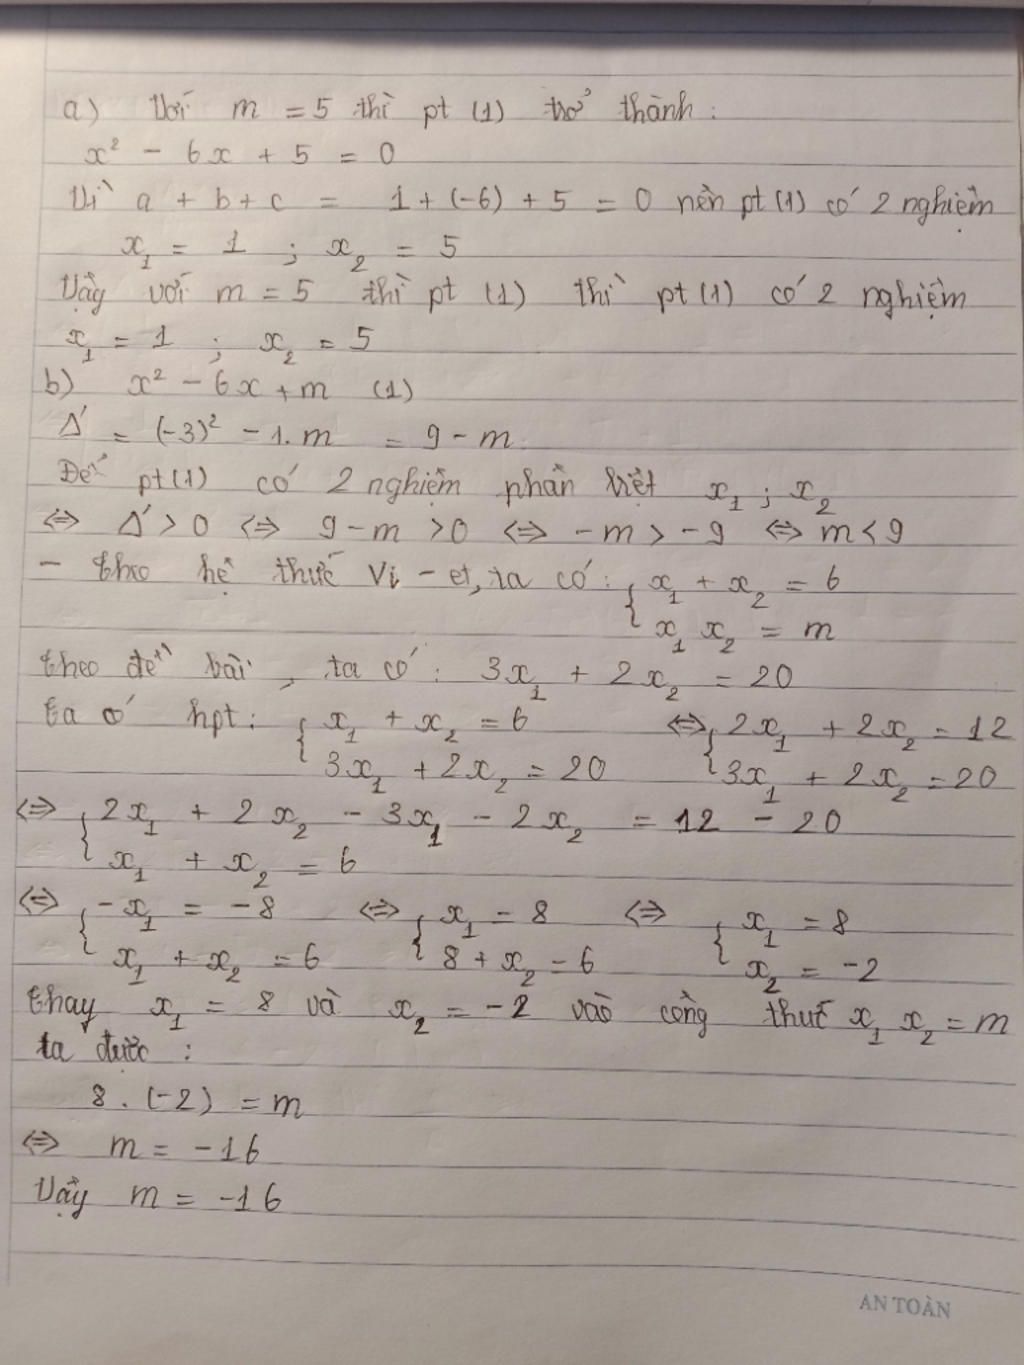 a) Với m = 5 thì pt (1) trở thành:
x² - 6x + 5 = 0
Vì a + b + c = 1 + (-6) + 5 = 0 nên pt (1) có 2 nghiệm
x₁ = 1 ; x₂ = 5
Vậy với m = 5 thì pt (1) thì pt (1) có 2 nghiệm
x₁ = 1 ; x₂ = 5
b) x² - 6x + m (1)
Δ' = (-3)² - 1.m = 9 - m
Để pt (1) có 2 nghiệm phân biệt x₁ ; x₂
⇔ Δ' > 0 ⇔ 9 - m > 0 ⇔ -m > -9 ⇔ m < 9
- theo hệ thức Vi-et, ta có: { x₁ + x₂ = 6
x₁ x₂ = m
theo đề bài, ta có: 3x₁ + 2x₂ = 20
ta có hpt: { x₁ + x₂ = 6 ⇔ { 2x₁ + 2x₂ = 12
3x₁ + 2x₂ = 20 3x₁ + 2x₂ = 20
⇔ { 2x₁ + 2x₂ - 3x₁ - 2x₂ = 12 - 20
x₁ + x₂ = 6
⇔ { -x₁ = -8 ⇔ { x₁ = 8 ⇔ { x₁ = 8
x₁ + x₂ = 6 8 + x₂ = 6 x₂ = -2
thay x₁ = 8 và x₂ = -2 vào công thức x₁ x₂ = m
ta được:
8 . (-2) = m
⇔ m = -16
Vậy m = -16
AN TOÀN